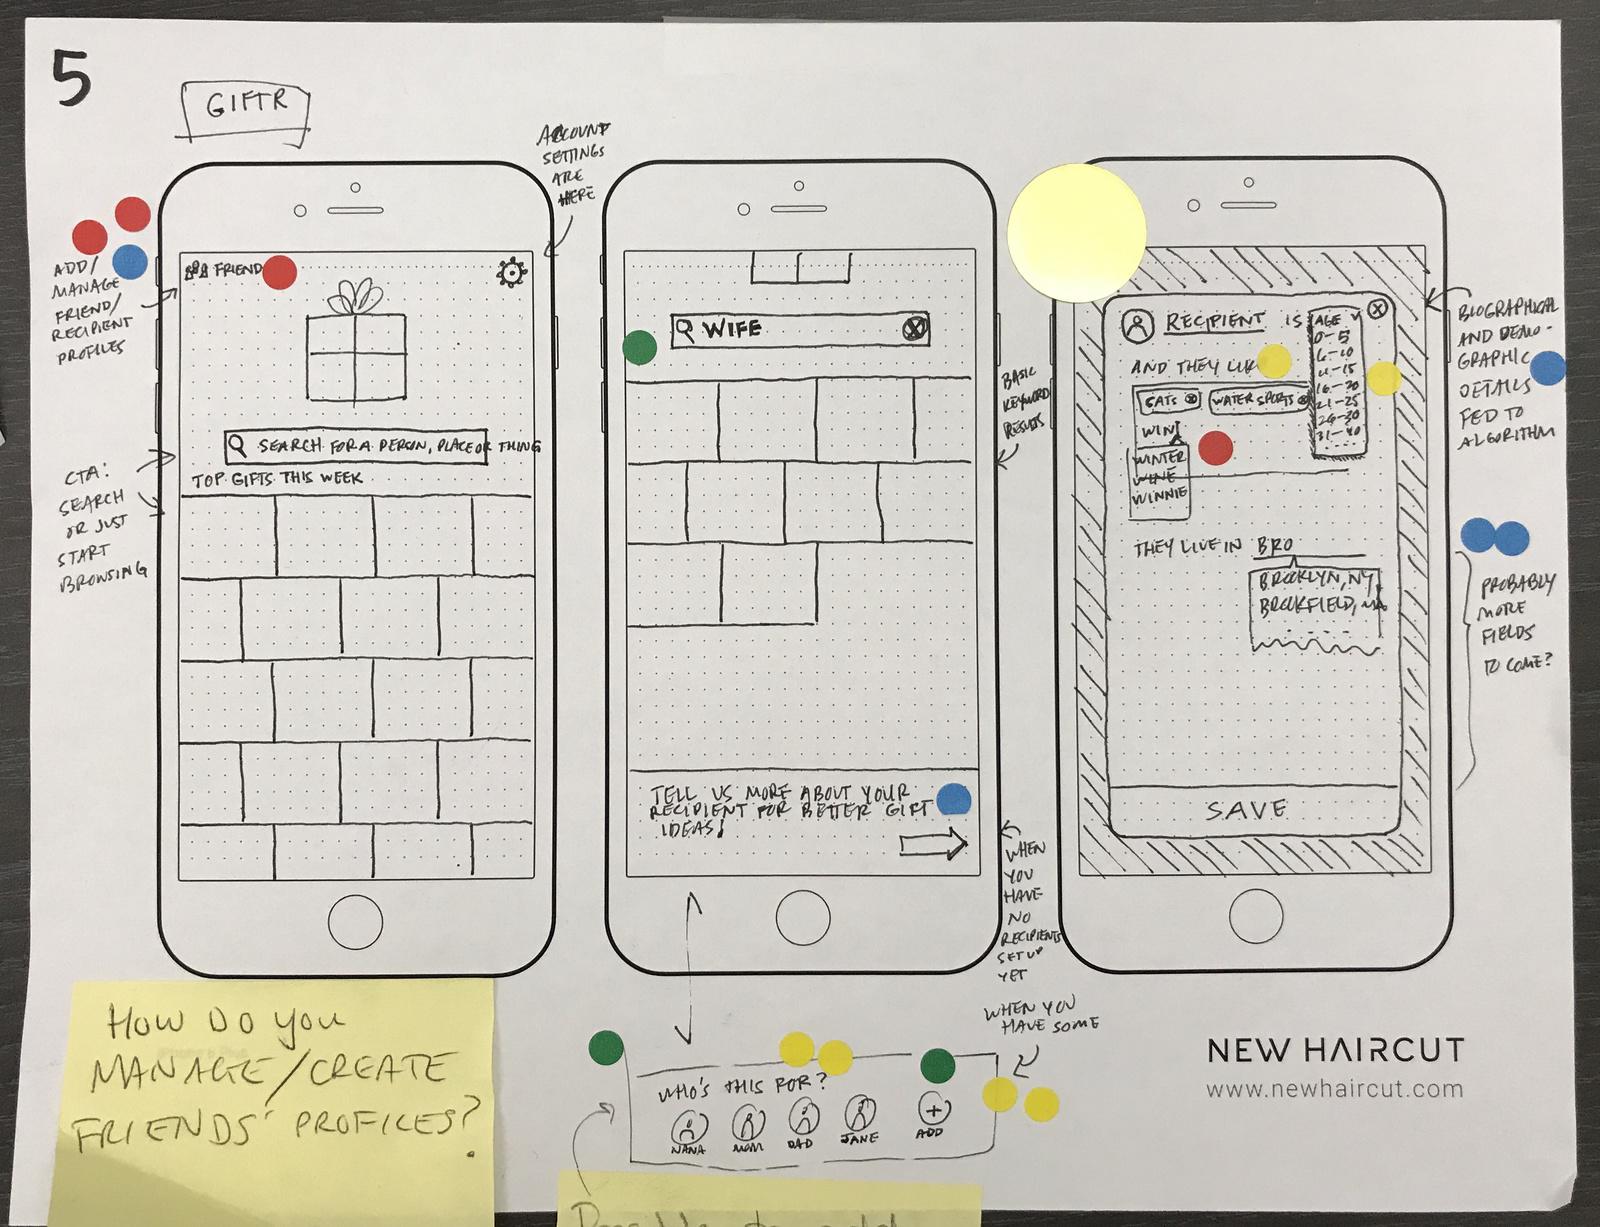 5
GIFTR
ACCOUNT
SETTINGS
ARE
HERE
ADD/
MANAGE
FRIEND/
RECIPIENT
PROFILES
FRIEND
SEARCH FOR A PERSON, PLACE OR THING
TOP GIFTS THIS WEEK
CTA:
SEARCH
OR JUST
START
BROWSING
WIFE
BASIC
KEYWORD
RESULTS
TELL US MORE ABOUT YOUR
RECIPIENT FOR BETTER GIFT
IDEAS!
WHEN
YOU
HAVE
NO
RECIPIENTS
SET UP
YET
RECIPIENT IS
AGE
0-5
6-10
11-15
16-20
21-25
26-30
31-40
AND THEY LIKE
CATS
WATER SPORTS
WIN
WINTER
WINE
WINNIE
THEY LIVE IN BRO
BROOKLYN, NY
BROOKFIELD, MA
SAVE
BIOGRAPHICAL
AND DEMO-
GRAPHIC
DETAILS
FED TO
ALGORITHM
PROBABLY
MORE
FIELDS
TO COME?
WHEN YOU
HAVE SOME
WHO'S THIS FOR?
NANA
MOM
DAD
JANE
ADD
NEW HAIRCUT
www.newhaircut.com
HOW DO YOU
MANAGE/CREATE
FRIENDS' PROFILES?